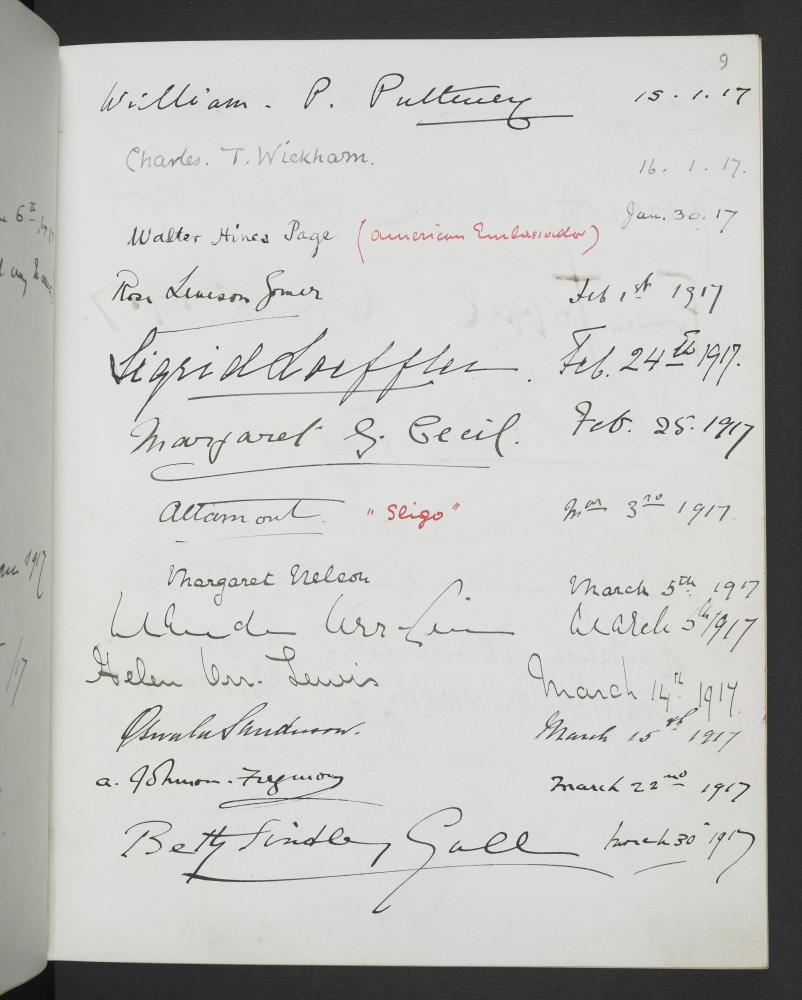 9
William. P. Pulteney 15.1.17
Charles. T. Wickham. 16.1.17.
Walter Hines Page (American Embassador) Jan. 30. 17
Rose Leveson Gower Feb 1st 1917
Sigrid Loeffler. Feb. 24th 1917.
Margaret G. Cecil. Feb. 25. 1917
Altamont. "Sligo" Mar 3rd 1917.
Margaret Nelson March 5th 1917
Orr- March 5th 1917
Helen Orr-Lewis March 14th 1917.
Oswald Sanderson. March 15th 1917
a. Johnson-Ferguson March 22nd 1917
Betty Lindley Gall March 30 1917
6th
1917
/17